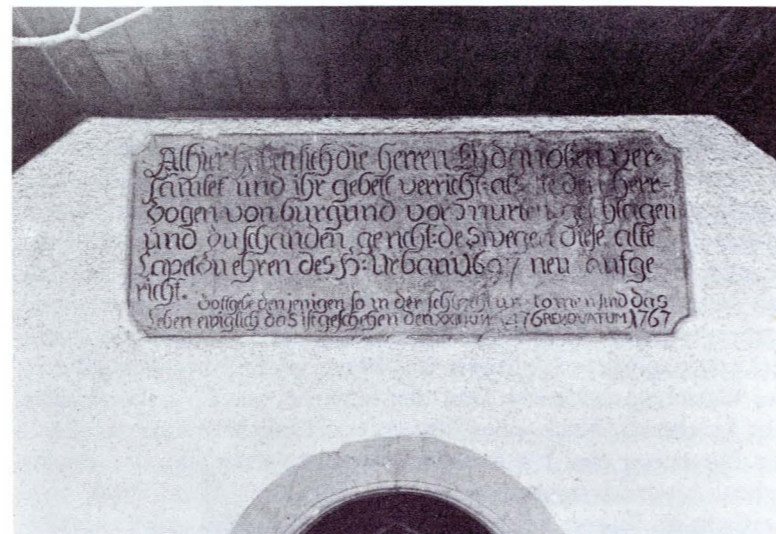 Alhier haben sich die herren Eydgnoßen ver-
samlet und ihr gebett verricht: als sie den herr-
zogen von burgund vor murten geschlagen
und zu schanden gericht: deswegen diese alte
Capel zu ehren des H: Urbani 1697 neu aufge
richt.
Gott gebe den jenigen so in der schlacht um komen sind das
Leben ewiglich das ist geschehen den 1476 RENOVATUM 1767